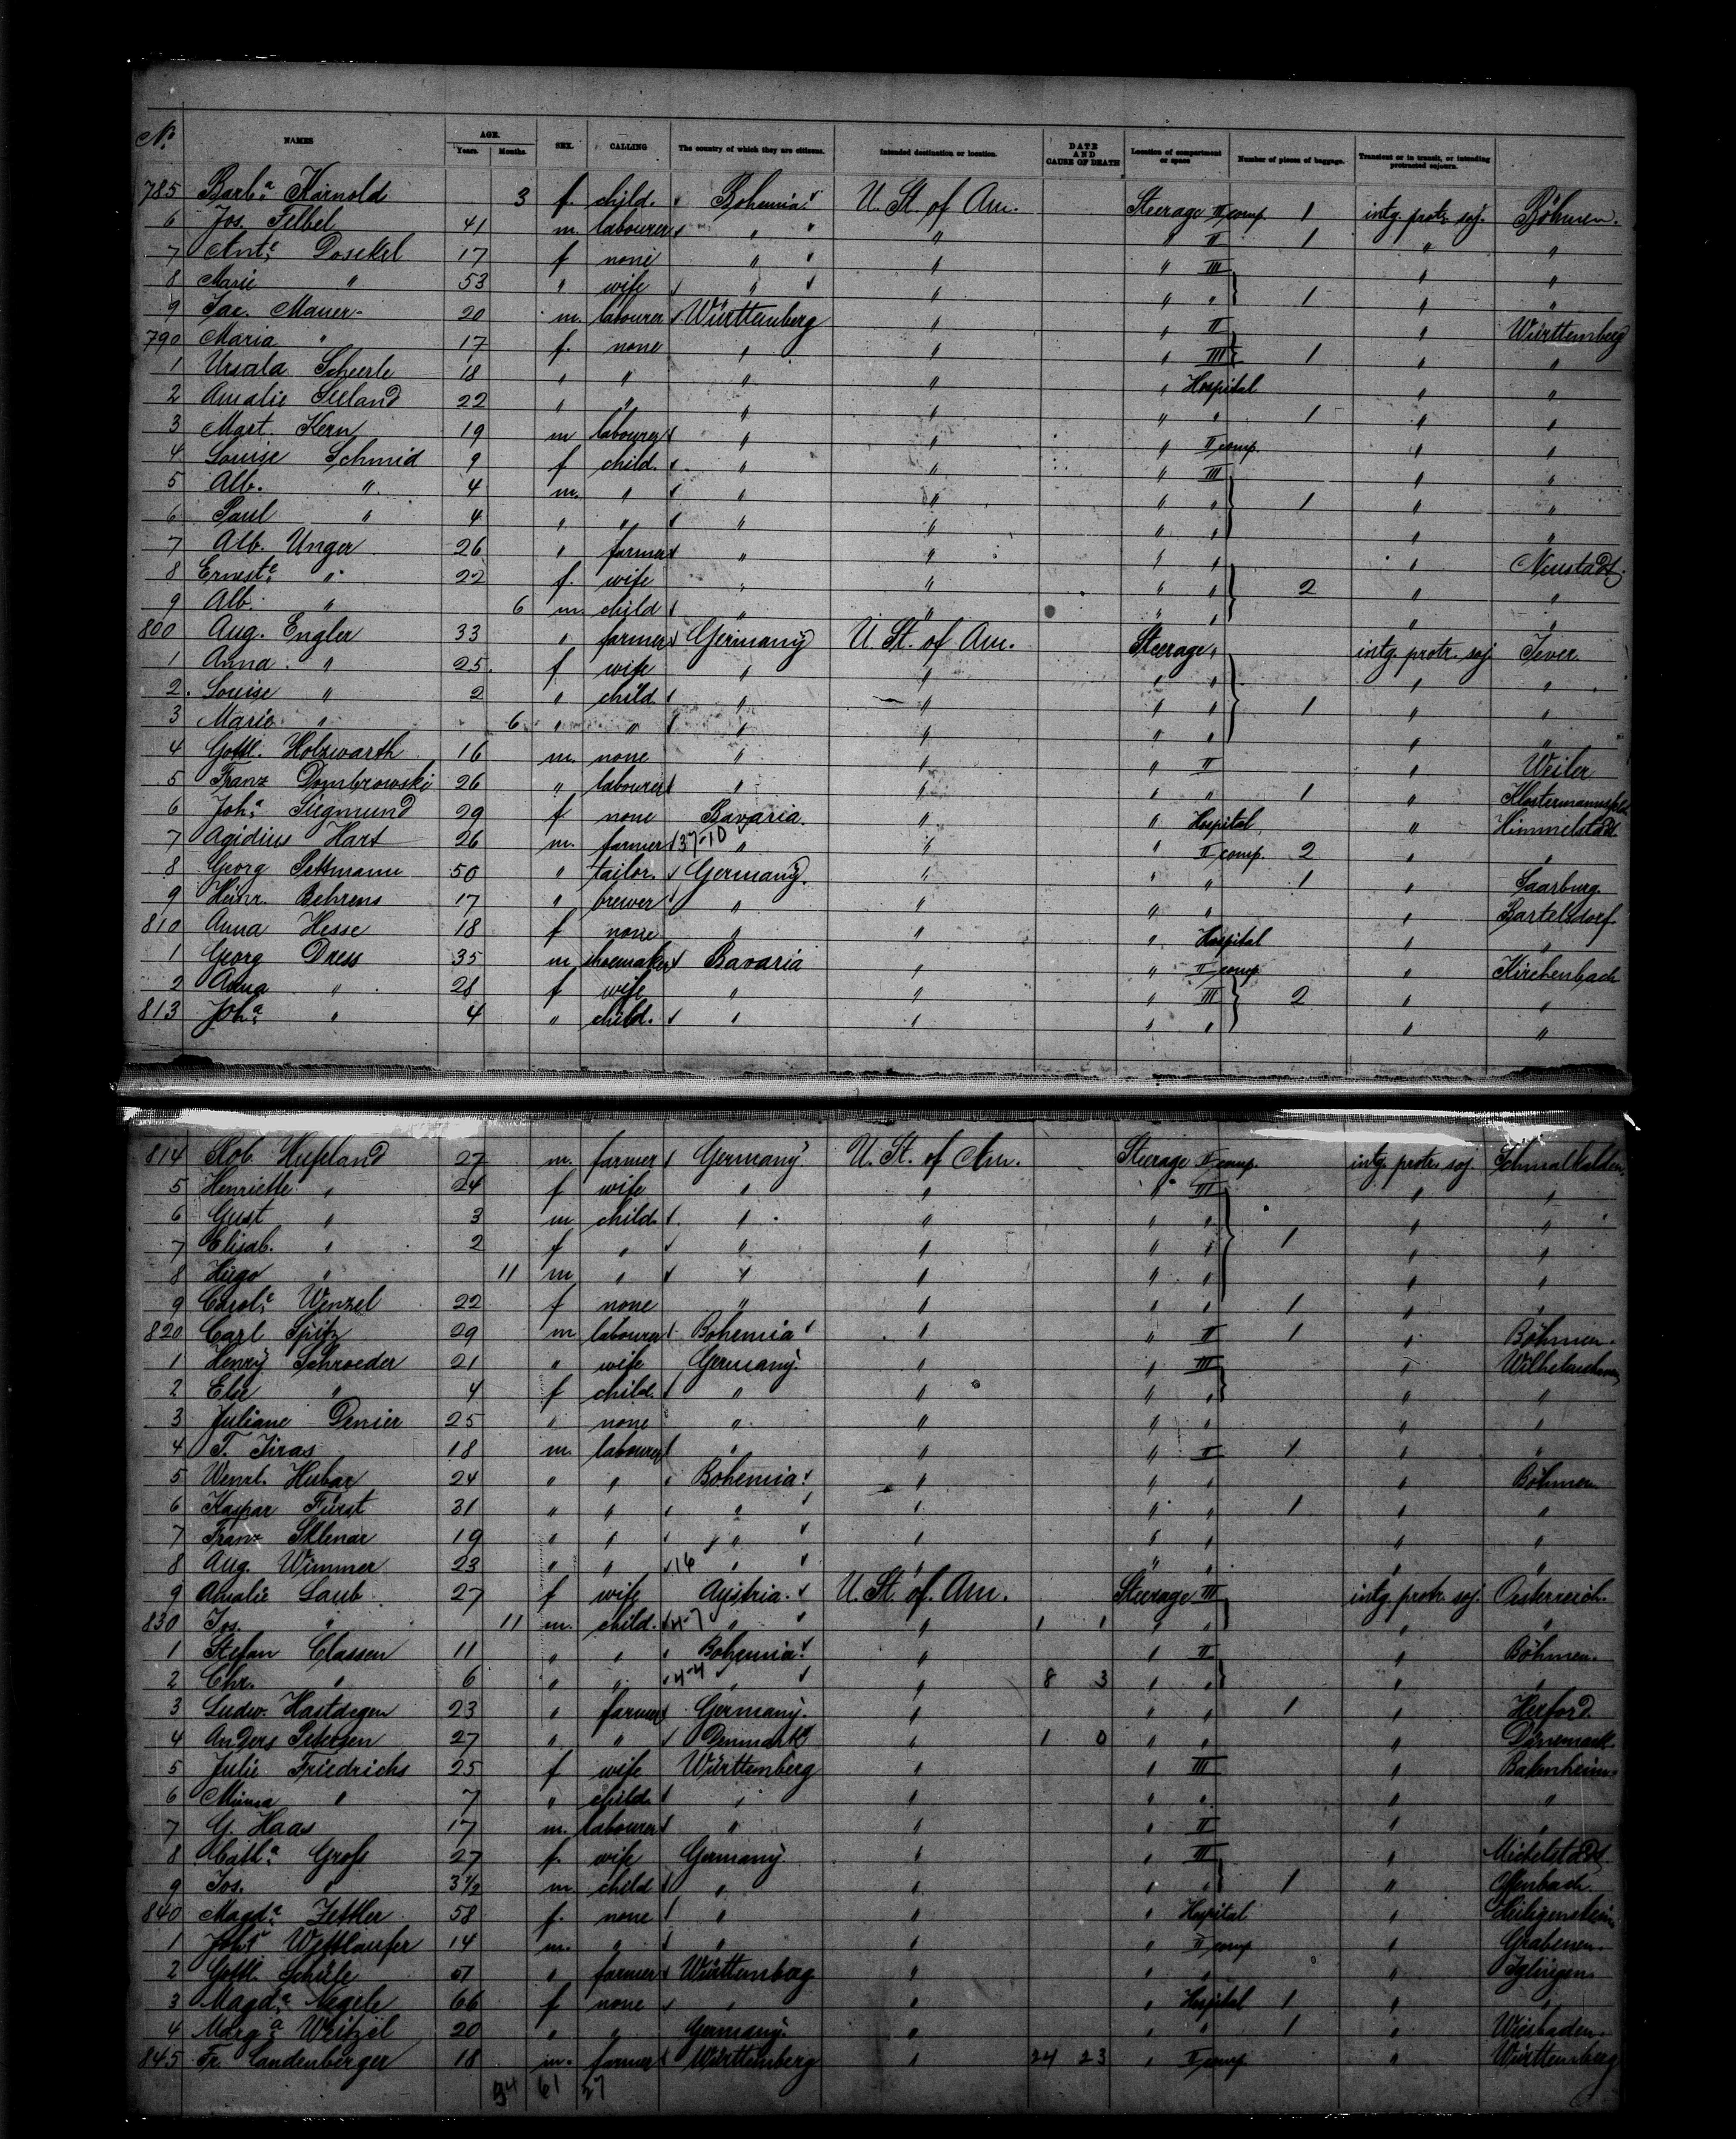 No. NAMES AGE. Years. Months. SEX. CALLING The country of which they are citizens. Intended destination or location. DATE AND CAUSE OF DEATH Location of compartment or space Number of pieces of baggage. Transient or in transit, or intending protracted sojourn.
785 Barb.a Karnold 3 f. child. Bohemia. U. St. of Am. Steerage II comp. 1 intg. protr. soj. Böhmen.
6 Jos. Felbel 41 m. labourer " " " II 1 " "
7 Ant.e Dosekel 17 f none " " " III " "
8 Marie " 53 " wife " " " " 1 " "
9 Jac. Mauer 20 m. labourer Württemberg " " II " Württemberg
790 Maria " 17 f. none " " " III 1 " "
1 Ursala Scheerle 18 " " " " " Hospital " "
2 Amalie Seeland 22 " " " " " " 1 " "
3 Mart. Kern 19 m labourer " " " II comp. " "
4 Louise Schmid 9 f child. " " " III " "
5 Alb. " 4 m. " " " " " 1 " "
6 Paul " 4 " " " " " " " "
7 Alb. Unger 26 " farmer " " " " " Neustadt
8 Ernest.e " 22 f. wife " " " " 2 " "
9 Alb. " 6 m. child " " " " " "
800 Aug. Engler 33 " farmer Germany U. St. of Am. Steerage " intg. protr. soj. Jever.
1 Anna " 25 f wife " " " " " "
2. Louise " 2 " child " " " " 1 " "
3 Marie " 6 " " " " " " " "
4 Gottl. Holzwarth 16 m. none " " " II " Weiler
5 Franz Dombrowski 26 " labourer " " " " 1 "
6 Joh.a Siegmund 29 f none Bavaria. " " Hospital " Himmelstadt
7 Agidius Hart 26 m. farmer 37-10 " " " II comp. 2 " "
8 Georg Pettmann 50 " tailor. Germany. " " " 1 " Saarburg.
9 Heinr. Behrens 17 " brewer " " " " " Bartelsdorf
810 Anna Hesse 18 f none " " " Hospital " "
1 Georg Dress 35 m shoemaker Bavaria " " II comp " Kirchenbach
2 Anna " 28 f wife " " " III 2 " "
813 Joh.a " 4 " child. " " " " " "
814 Rob. Hufeland 27 m. farmer Germany U. St. of Am. Steerage II comp. intg. protr. soj. Schmalkalden
5 Henriette " 24 f wife " " " III " "
6 Gust " 3 m child " " " " " "
7 Elisab. " 2 f " " " " " 1 " "
8 Hugo " 11 m " " " " " " "
9 Carol.e Wenzel 22 f none " " " " 1 " "
820 Carl Spitz 29 m labourer Bohemia " " II 1 " Böhmen.
1 Henry Schroeder 21 " wife Germany. " " III "
2 Else " 4 f child. " " " " " "
3 Juliane Denier 25 " none " " " " " "
4 T. Jiras 18 m. labourer " " " II 1 " "
5 Wenzl. Hubar 24 " " Bohemia. " " " Böhmen
6 Kaspar Fürst 31 " " " " " " 1 " "
7 Franz Sklenar 19 " " " " " " " "
8 Aug. Wimmer 23 " " 16 " " " " " "
9 Amalie Laub 27 f wife Austria. U. St. of. Am. Steerage III intg. protr. soj. Oesterreich.
830 Jos. " 11 m. child. 4-7 " " 1 1 " " " "
1 Stefan Classen 11 " " Bohemia. " " II " Böhmen.
2 Chr. " 6 " " 4-4 " " 8 3 " " " "
3 Ludw. Hastdegen 23 " farmer Germany. " " " 1 " Herford
4 Anders Petersen 27 " " Denmark " 1 0 " " " Dänemark
5 Julie Friedrichs 25 f wife Württemberg " " III "
6 Minna " 7 " child " " " " " "
7 G. Haas 17 m. labourer " " " II " "
8 Cath.a Gross 27 f. wife Germany " " III " Michelstadt
9 Jos. " 3½ m child " " " " 1 " Offenbach.
840 Magd.a Zettler 58 f. none " " " Hospital " Heiligenstein
1 Joh.s Wettlaufer 14 m. " " " " II comp " Grabenen.
2 Gottl. Schüle " farmer Württemberg " " " "
3 Magd.a Negele 66 f none " " " Hospital 1 " "
4 Marg.a Weitzel 20 " " Germany. " " " 1 " Wiesbaden.
845 Fr. Landenberger 18 m. farmer Württemberg " 24 23 " II comp " Württemberg
34 61 27